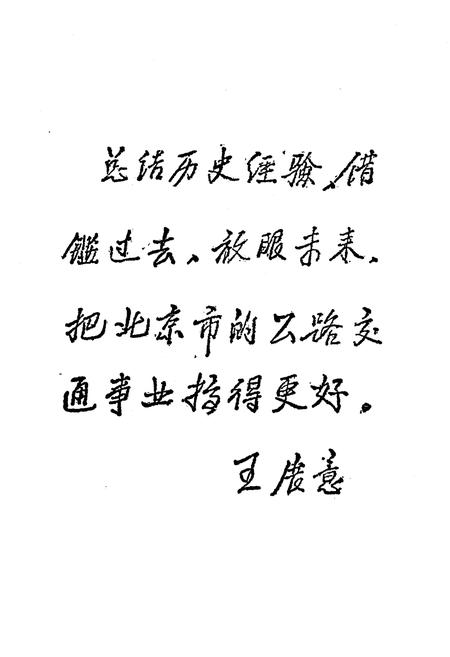 总结历史经验、借
鉴过去、放眼未来、
把北京市的公路交
通事业搞得更好。
王展意